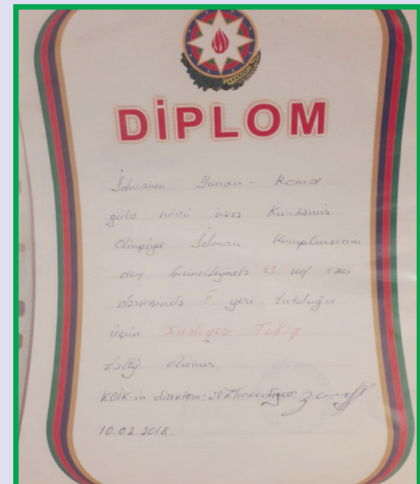 DİPLOM
İdmanın Yunan - Roma
güləş növü üzrə Kürdəmir
Olimpiya İdman Kompleksinin
açıq birinciliyində 23 kq çəki
dərəcəsində yeri tutduğu
üçün
təltif olunur
KOİK-in direktoru:
10.02.2018.